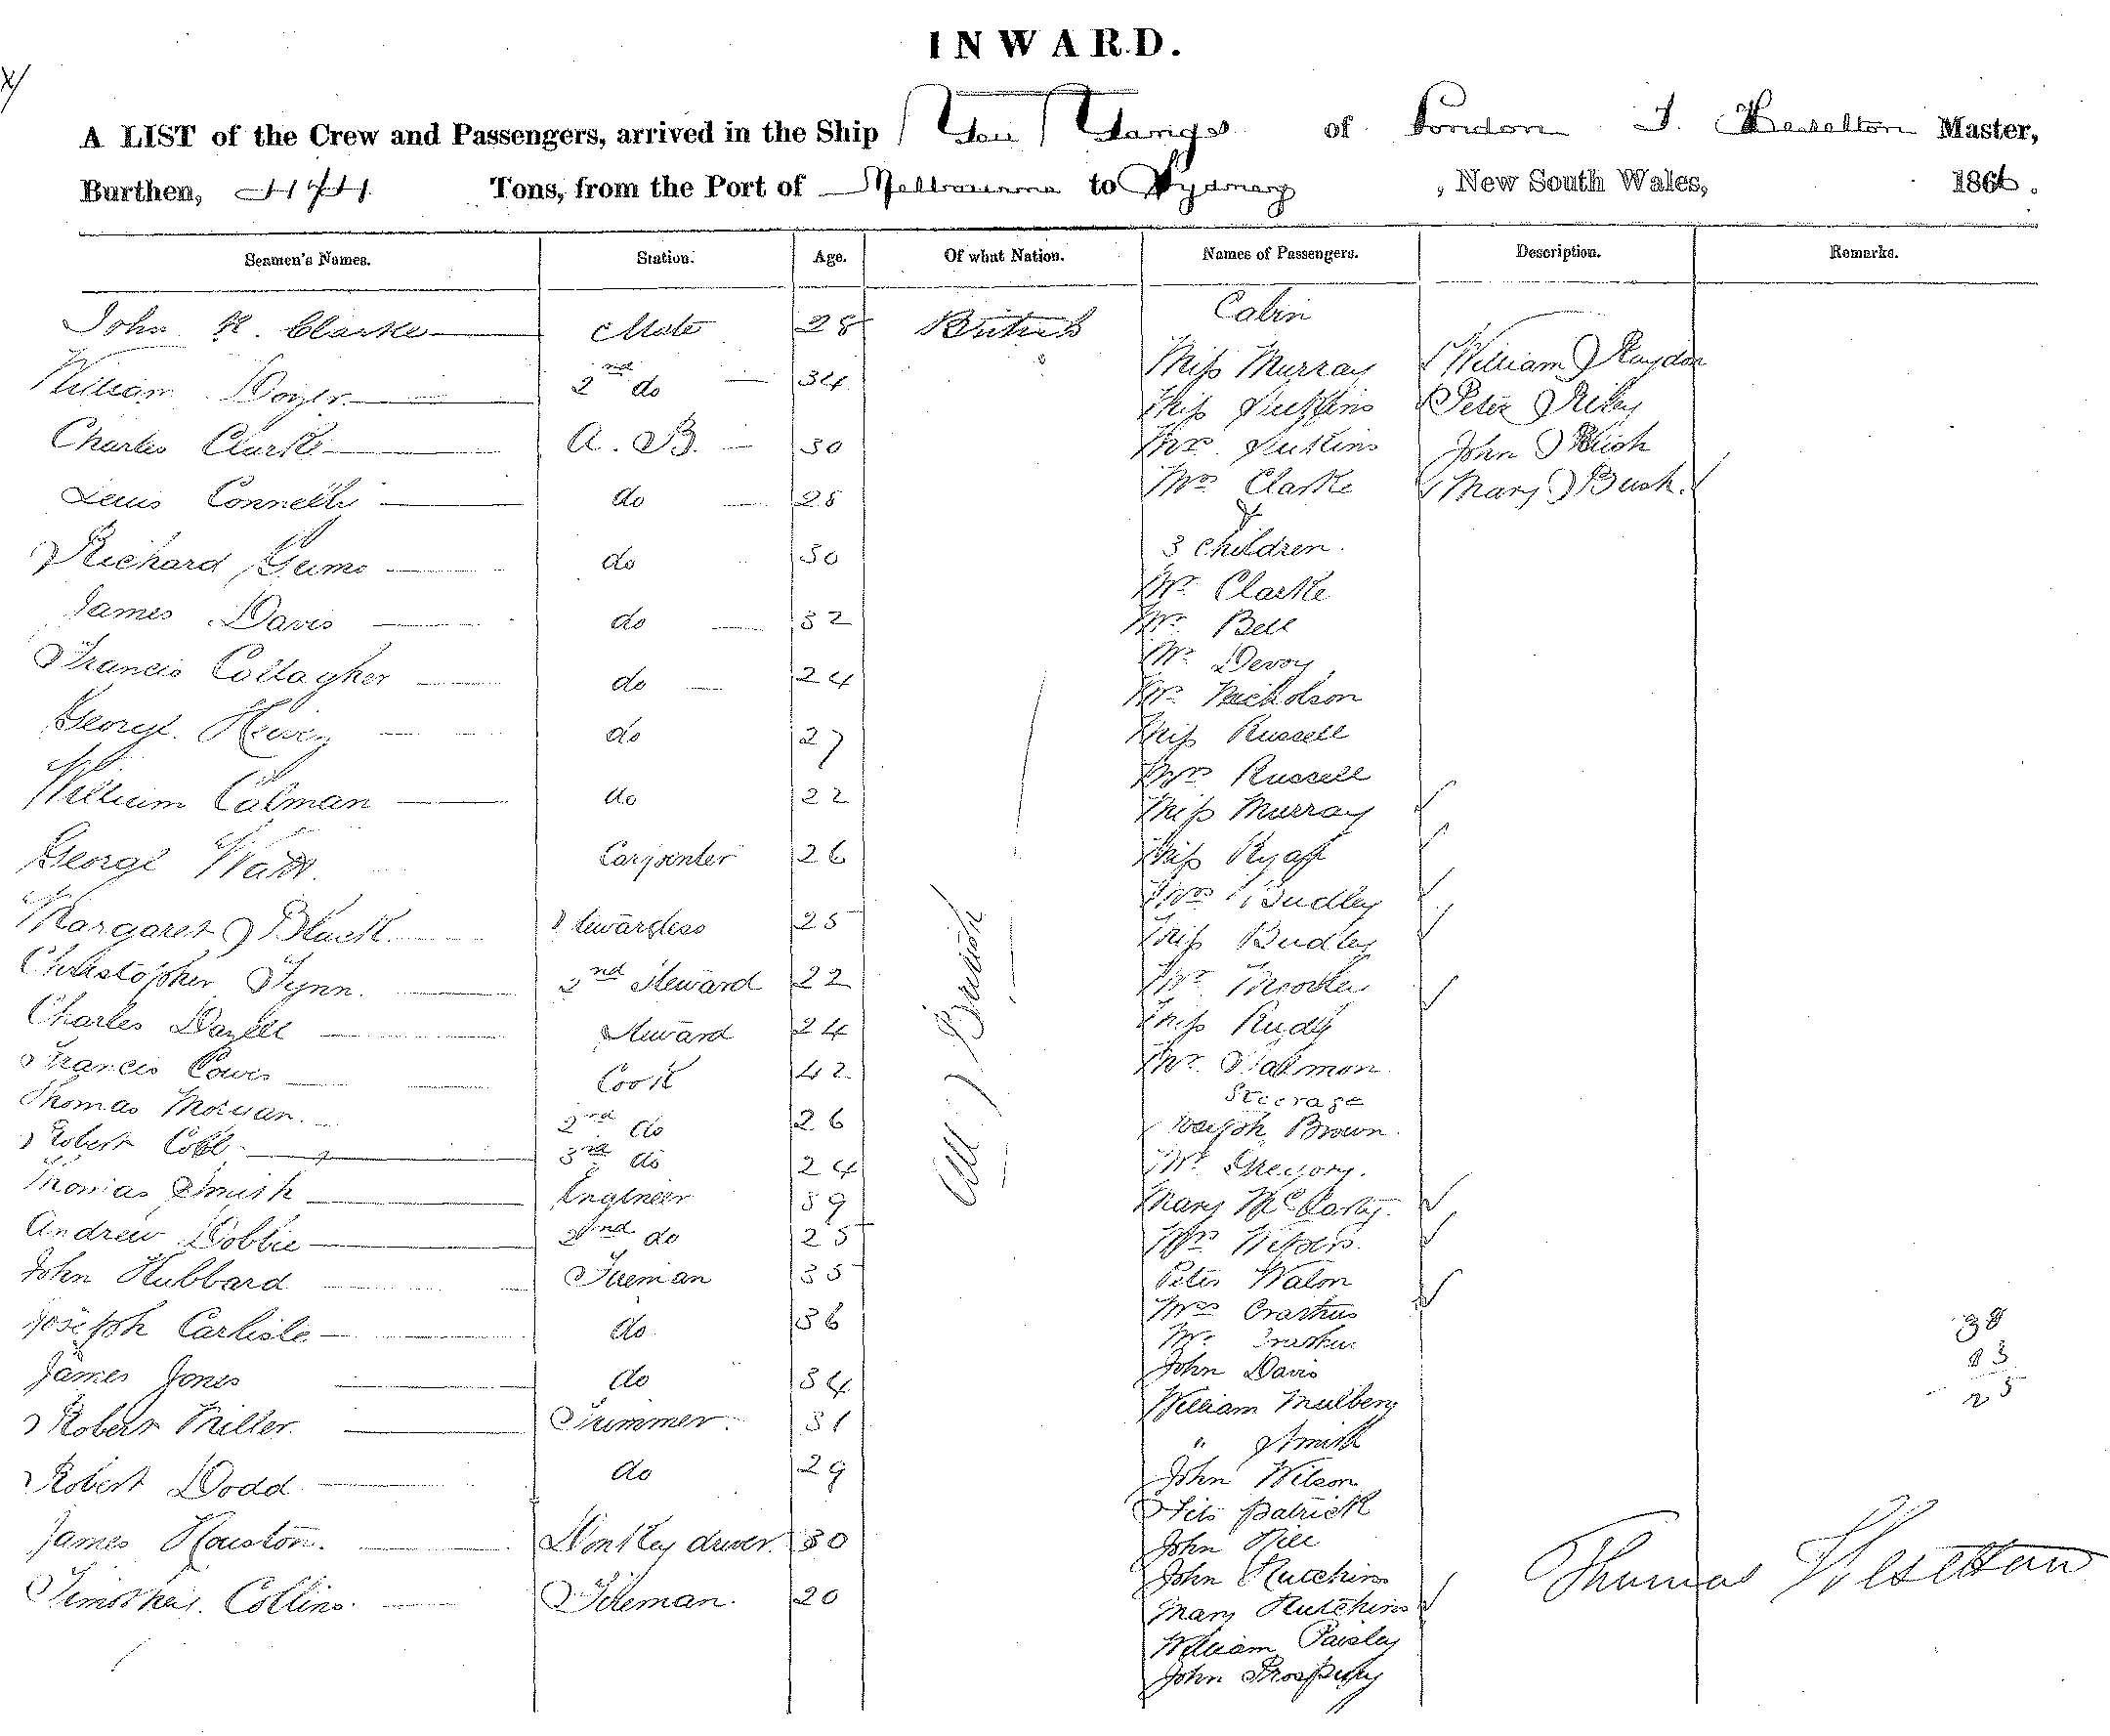 INWARD.
A LIST of the Crew and Passengers, arrived in the Ship You Yangs of London T. Heselton Master,
Burthen, 474 Tons, from the Port of Melbourne to Sydney, New South Wales, 1866.
Seamen's Names. Station. Age. Of what Nation. Names of Passengers. Description. Remarks.
John H. Clarke Mate 28 British
William 2nd do 34
Charles Clark A. B. 30
Lewis Connelly do 28
Richard do 30
James Davis do 32
Francis Collagher do 24
George do 27
William Calman do 22
George Watt Carpenter 26
Margaret Black Stewardess 25
Christopher Fynn. 2nd Steward 22
Charles Dazell Steward 24
Francis Cowis Cook 42
Thomas Morgan. 2nd do 26
Robert Cobb 3rd do 24
Thomas Smith Engineer 39
Andrew Dobbie 2nd do 25
John Hubbard Fireman 35
Joseph Carlisle do. 36
James Jones do 34
Robert Miller. Trimmer. 31
Robert Dodd do 29
James Houston. Donkey driver. 30
Collins. Fireman. 20
All British
Cabin
Miss Murray
Miss
Mrs Jenkins
Mrs Clarke
&
3 Children.
Mr Clarke
Mr Bell
Mr Devoy
Mr Nicholson
Miss Russell
Mrs Russell
Miss Murray
Miss
Mrs Budley
Miss Budley
Mr
Miss
Mr
Steerage
Joseph Brown.
Mr Gregory.
Mary McCarty.
Mrs
Peter Walon
Mrs
Mr
John Davis
William Mulberry
" Smith
John Wilson
Fits patrick
John Hill
John Hutchins
Mary Hutchins
William Paisley
John
William Haydon
Peter Riley
John
Mary Bush.
38
13
25
Thomas Heselton